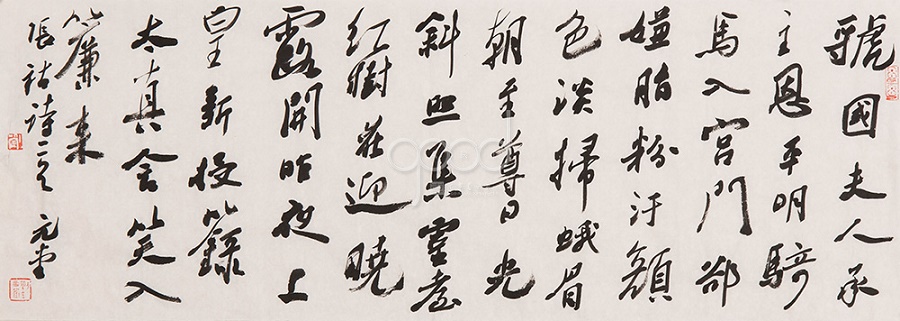 虢國夫人承
主恩平明騎
馬入宮門卻
嫌脂粉汙顏
色淡掃蛾眉
朝至尊日光
斜照集靈臺
紅樹花迎曉
露開昨夜上
皇新授籙
太真含笑入
簾来
張祜诗二首 元